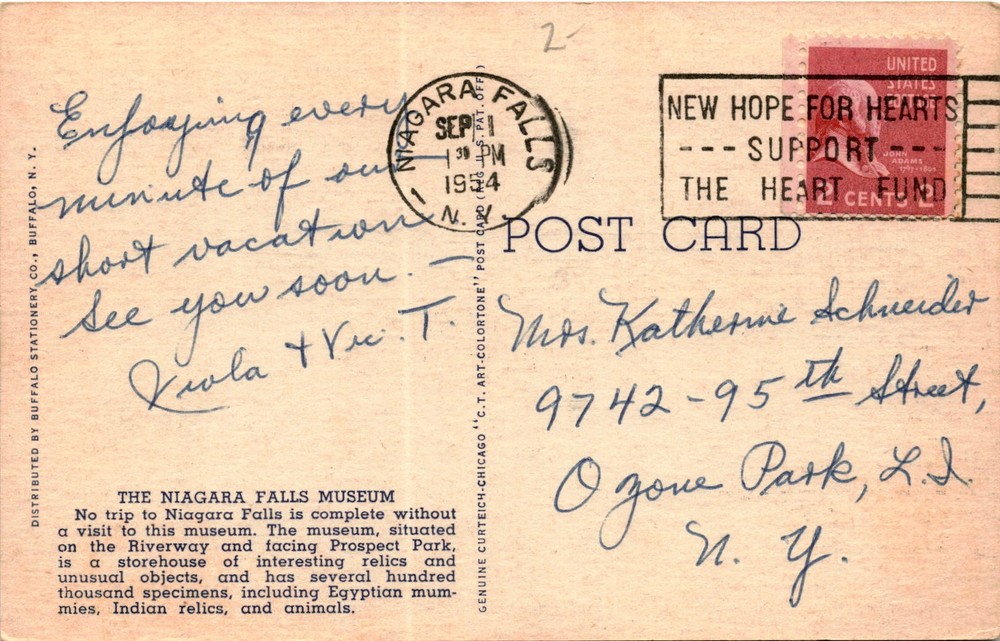 2-
Enjoying every
minute of our
short vacation
See you soon. —
Viola + Vic. T.
THE NIAGARA FALLS MUSEUM
No trip to Niagara Falls is complete without
a visit to this museum. The museum, situated
on the Riverway and facing Prospect Park,
is a storehouse of interesting relics and
unusual objects, and has several hundred
thousand specimens, including Egyptian mum-
mies, Indian relics, and animals.
DISTRIBUTED BY BUFFALO STATIONERY CO., BUFFALO, N. Y.
GENUINE CURTEICH-CHICAGO "C.T. ART-COLORTONE" POST CARD (REG. U.S. PAT. OFF.)
NIAGARA FALLS
SEP 1
1 30 PM
1954
N. Y.
NEW HOPE FOR HEARTS
--- SUPPORT ---
THE HEART FUND
UNITED
STATES
JOHN
ADAMS
1797-1801
2 CENTS 2
POST CARD
Mrs. Katherine Schneider
9742-95th Street,
Ozone Park, L.I.
N. Y.